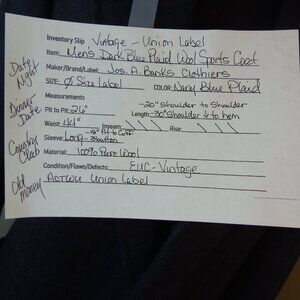 Inventory Slip Vintage - Union Label
Item: Men's Dark Blue Plaid Wool Sports Coat
Maker/Brand/Label: Jos. A. Banks Clothiers
SIZE: Ø Size Label COLOR: Navy Blue Plaid
Measurements
~20" Shoulder to Shoulder
Pit to Pit: 26" Length: ~30" Shoulder ↓ to hem
Waist: 44" Inseam: Rise:
~18" Pit to Cuff
Sleeve: Long - 3 button
Material: 100% Pure Wool
Condition/Flaws/Defects: EUC - Vintage
ACTWU Union Label
Date Night
Dinner Date
Country Club
Old Money